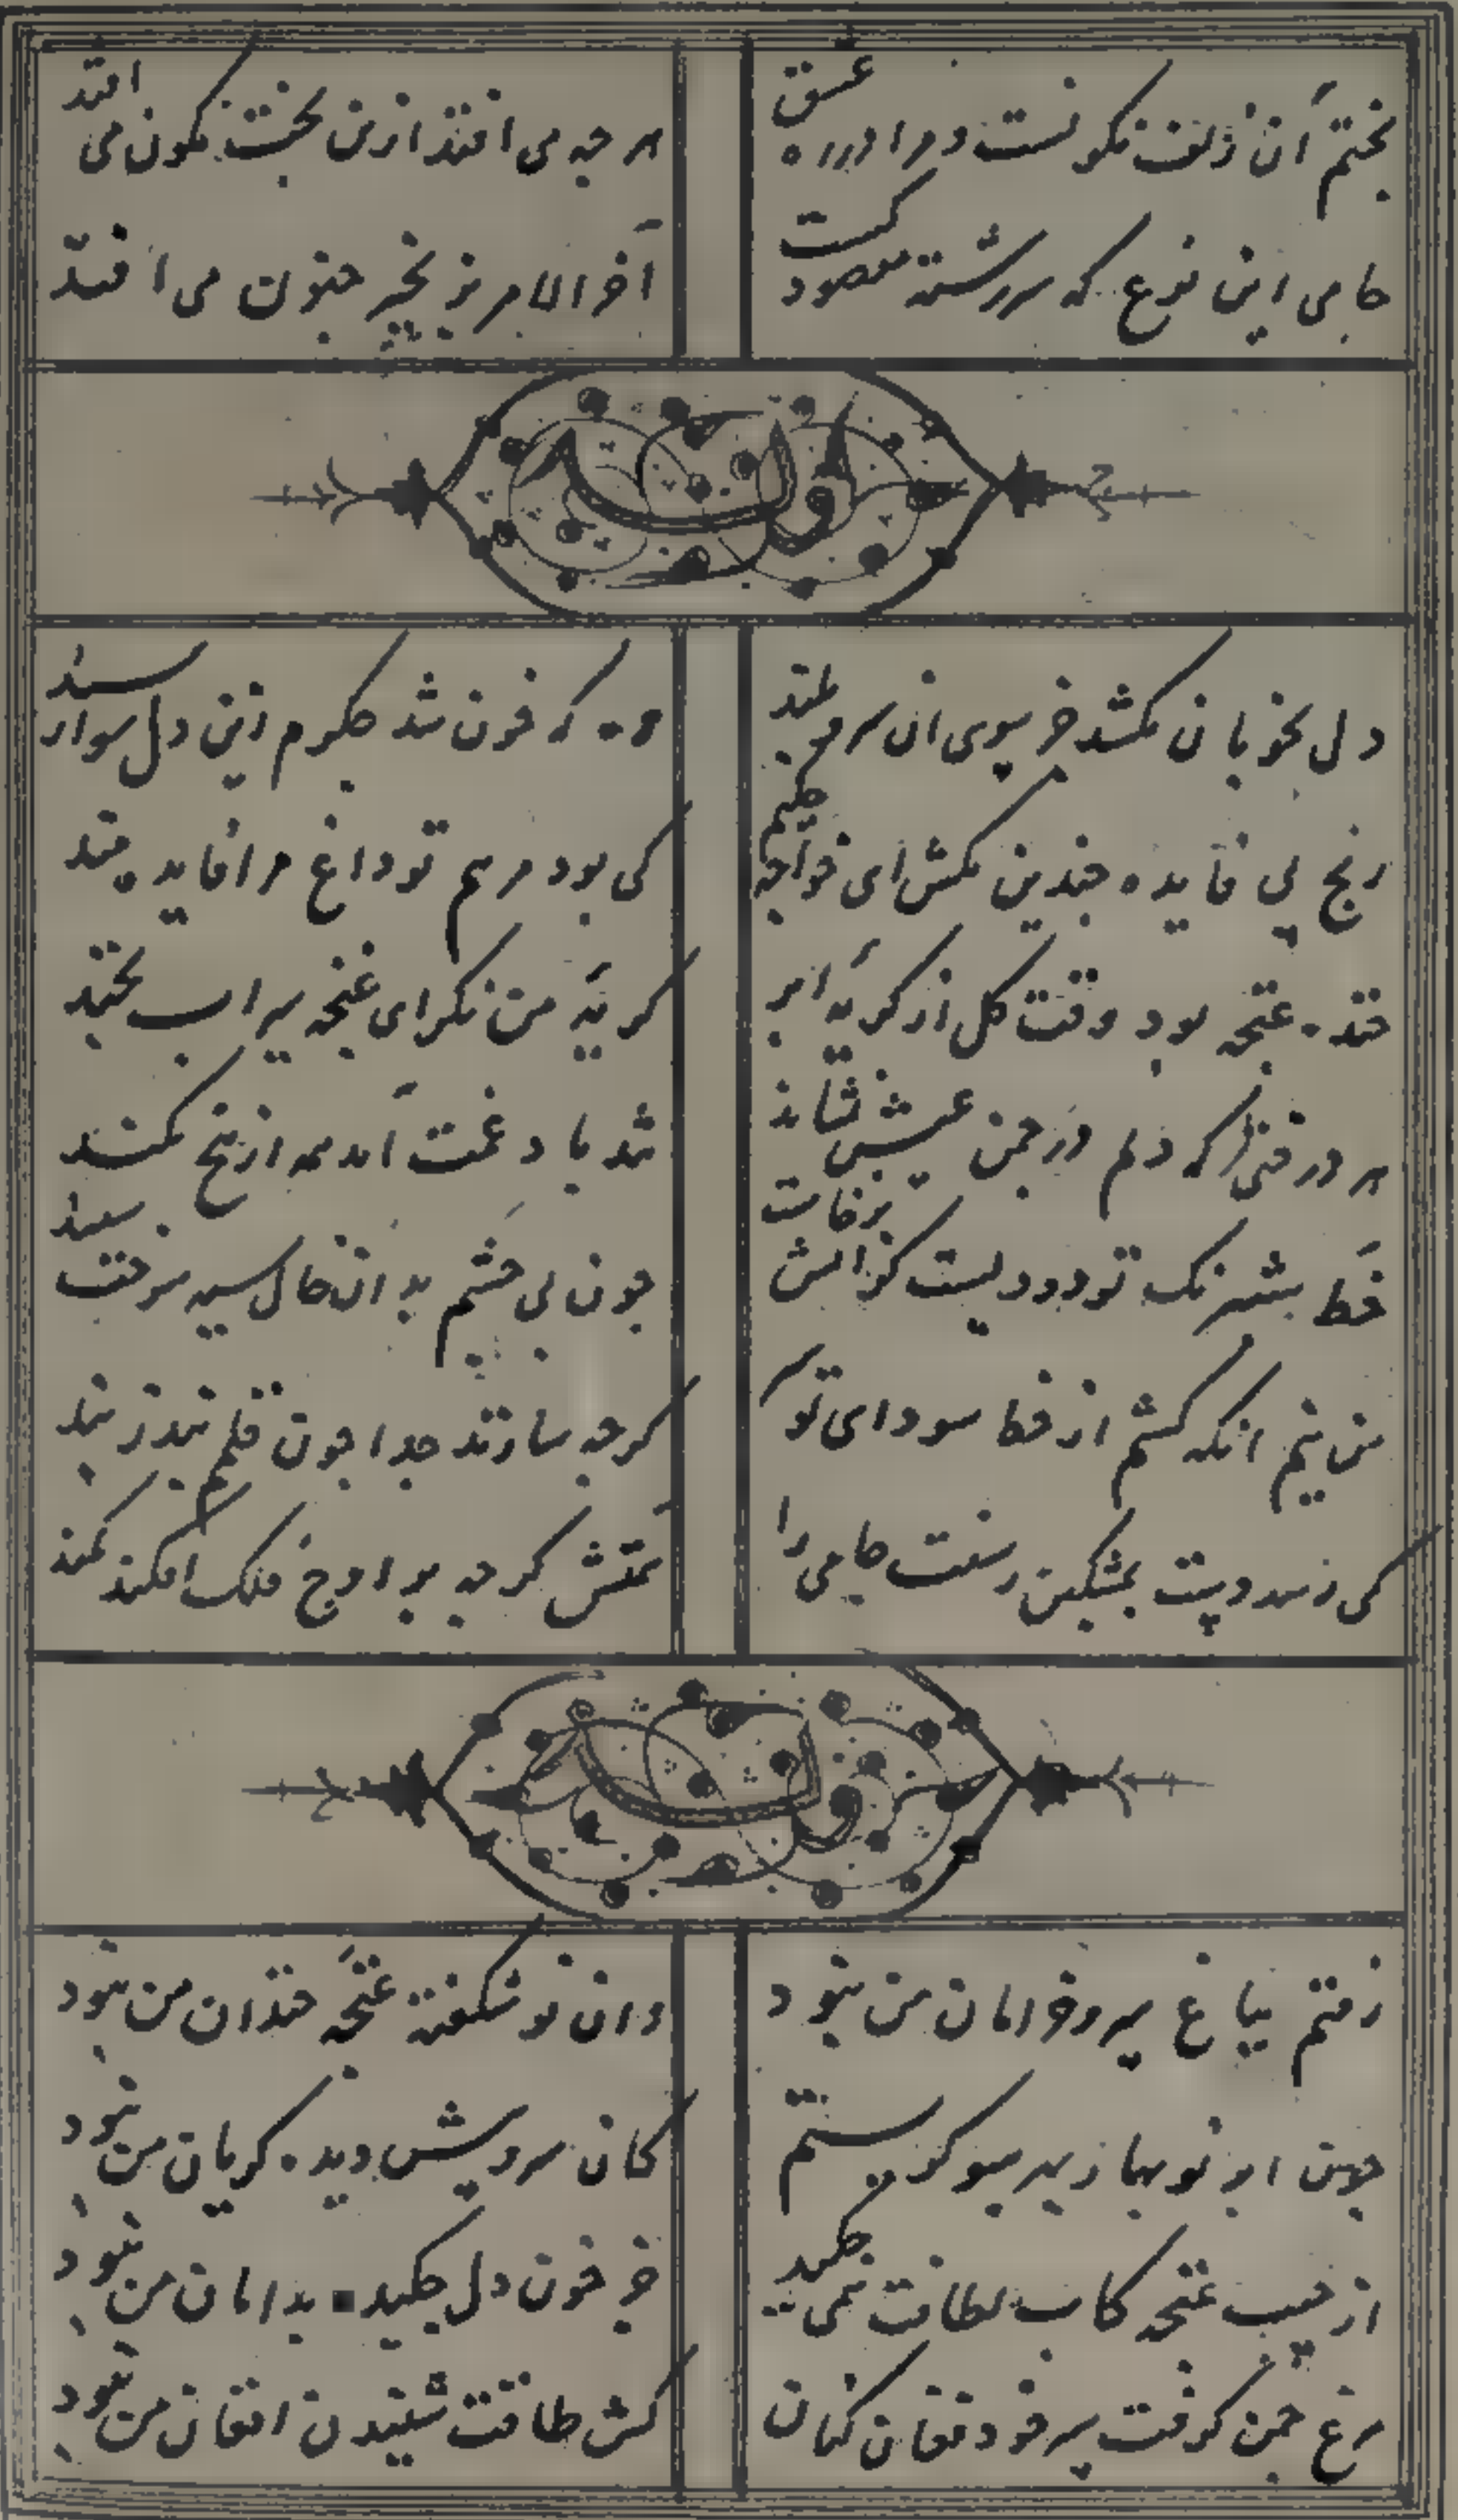 بختم آن زلف نکونست و مرا در ره عشق
هر چه می افتد ازین بخت نکون می افتد
جامی این نوع که سررشته مقصود کسست
آخر الامر بزنجیر جنون می افتد
وله
دل بخوبان نکشد جز سوی آن سرو بلند
وه که خون شد جکرم زین دل سوار بسند
رنج بی فایده چندین مکش ای خواجه حکیم
کی بود مرهم تو داغ مرا فایده مند
خنده غنچه بود وقت کل از کریه ابر
کریه من نکر ای غنچه سیراب بخند
هر درختی که دلم در چمن عیش نشاند
شد باد غمت آمد همه از بیخ بکند
خط شبرنک تو دودیست کز آتش برخاست
چون بی چشم بد آن خال سیه سوخت سپند
من نیم آنکه کشم از خط سودای تو سر
کرچه سازند جدا چون قلمم بند ز بند
کی رسد دست بمشکین رسنت جامی را
همتش کرچه بر اوج فلک افکند کمند
وله
رفتم بباغ سرو خرامان من نبود
وان نو شکفته غنچه خندان من نبود
چون ابر نوبهار بهر سو کریستم
کان سرو پیش دیده کریان من نبود
از جیب غنچه کاب لطافت همی چکید
جز خون دل چکیده بدامان من نبود
مرغ چمن کرفت سر خود فغان کنان
کش طاقت شنیدن افغان من نبود